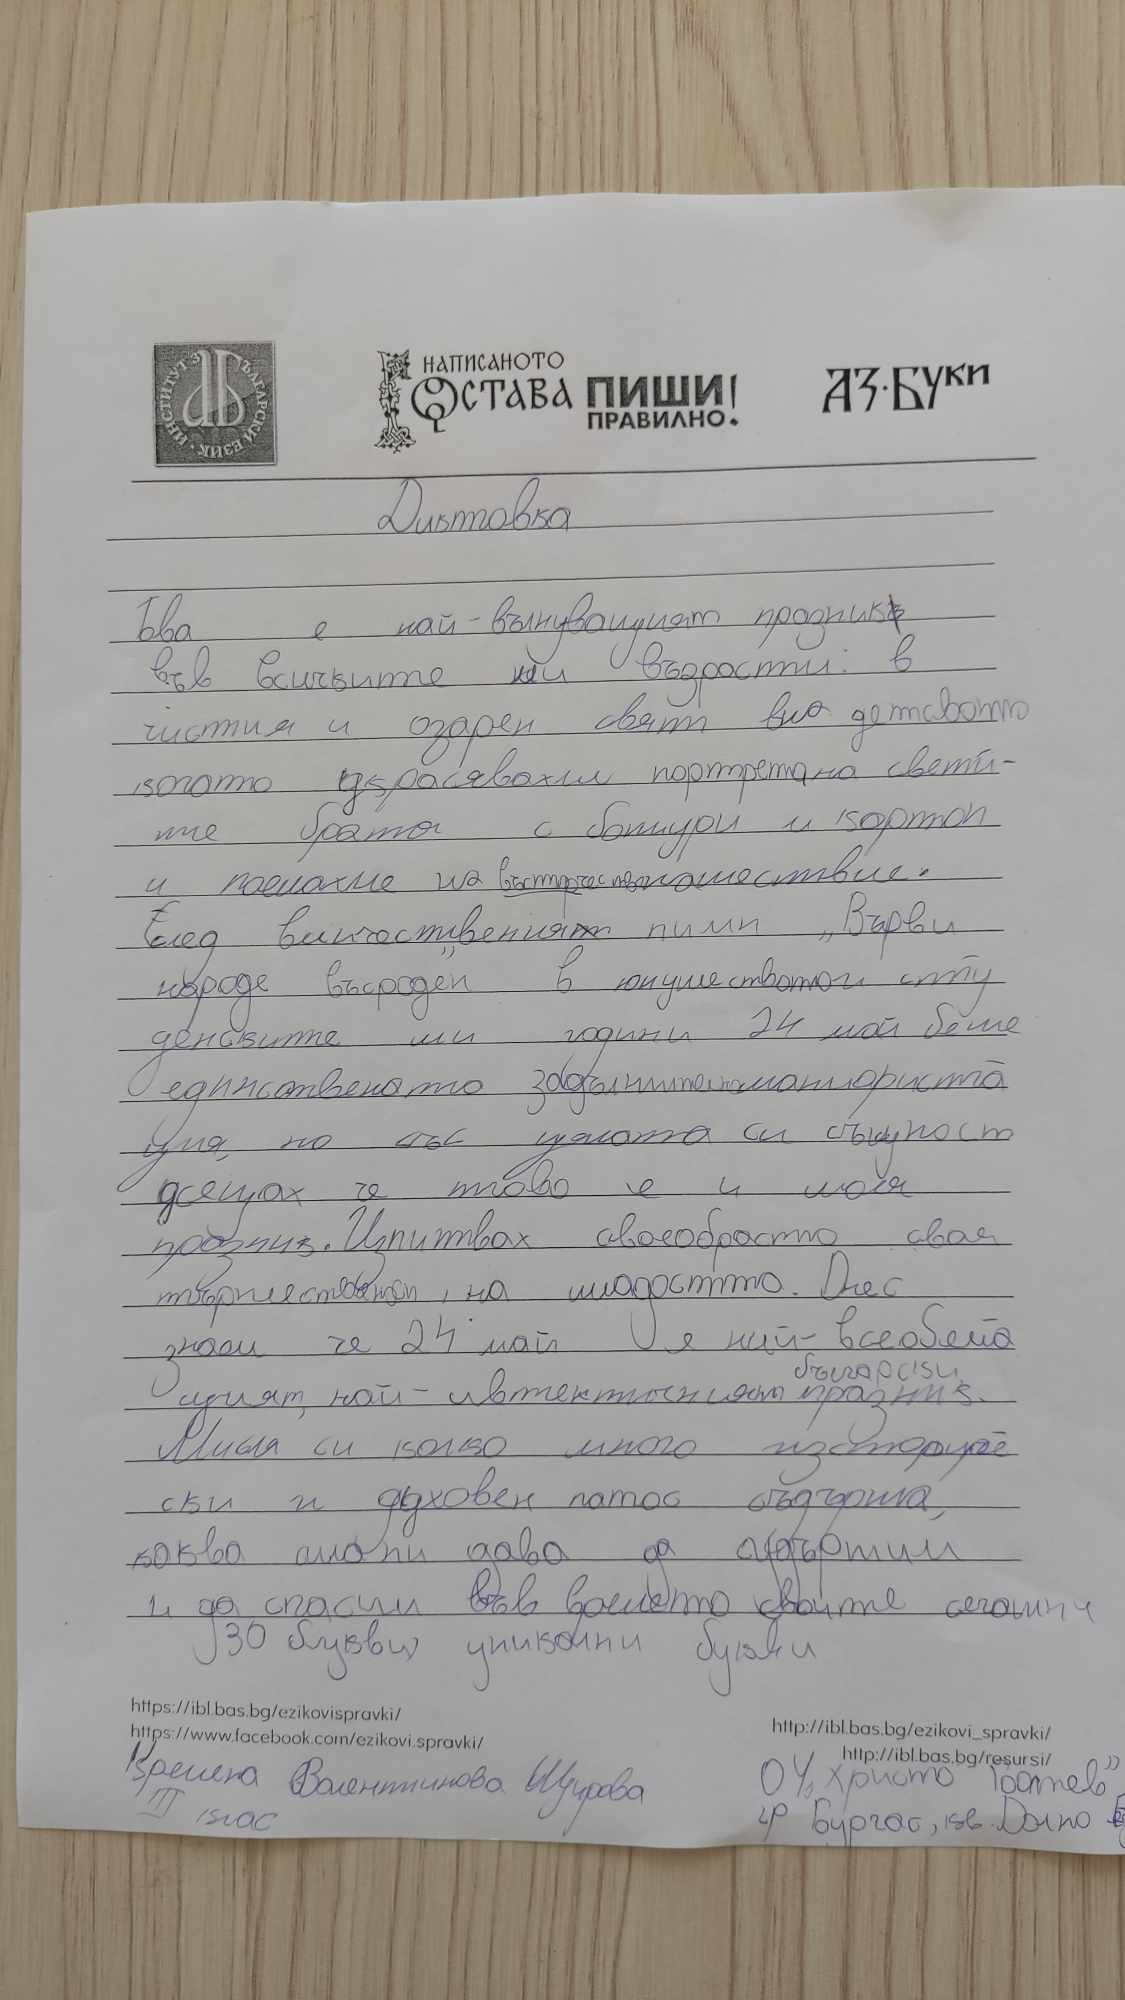 ИНСТИТУТ ЗА БЪЛГАРСКИ ЕЗИК
НАПИСАНОТО
ОСТАВА ПИШИ!
ПРАВИЛНО.
АЗ·БУКИ
Диктовка
Това е най-вълнуващият празник
във всичките ми възрасти: в
чистия и озарен свят на детството
когато украсявахми портрета на свети-
те братя с божури и картон
и поемахме на шествие.
След величественият пимн „Върви
народе възроден в юнушеството и сту
денските ми години 24 май беше
единствената задължителна манифеста
ция, но със цялата си същност
усещах че това е и моя
празник. Изпитвах своеобразно свая
тържествен, на младостта. Днес
знаем че 24 май я най-всеобеба
щият, най-автентичният български празник.
Мисля си колко много историче
ски и духовен патос съдържа,
каква сила ни дава да съхраним
и да спасим във времето своите сегашни
30 букви уникални букви
https://ibl.bas.bg/ezikovispravki/
https://www.facebook.com/ezikovi.spravki/
http://ibl.bas.bg/ezikovi_spravki/
http://ibl.bas.bg/resursi/
Кремена Валентинова
III клас
ОУ „Христо Ботев”
гр Бургас, кв. Долно